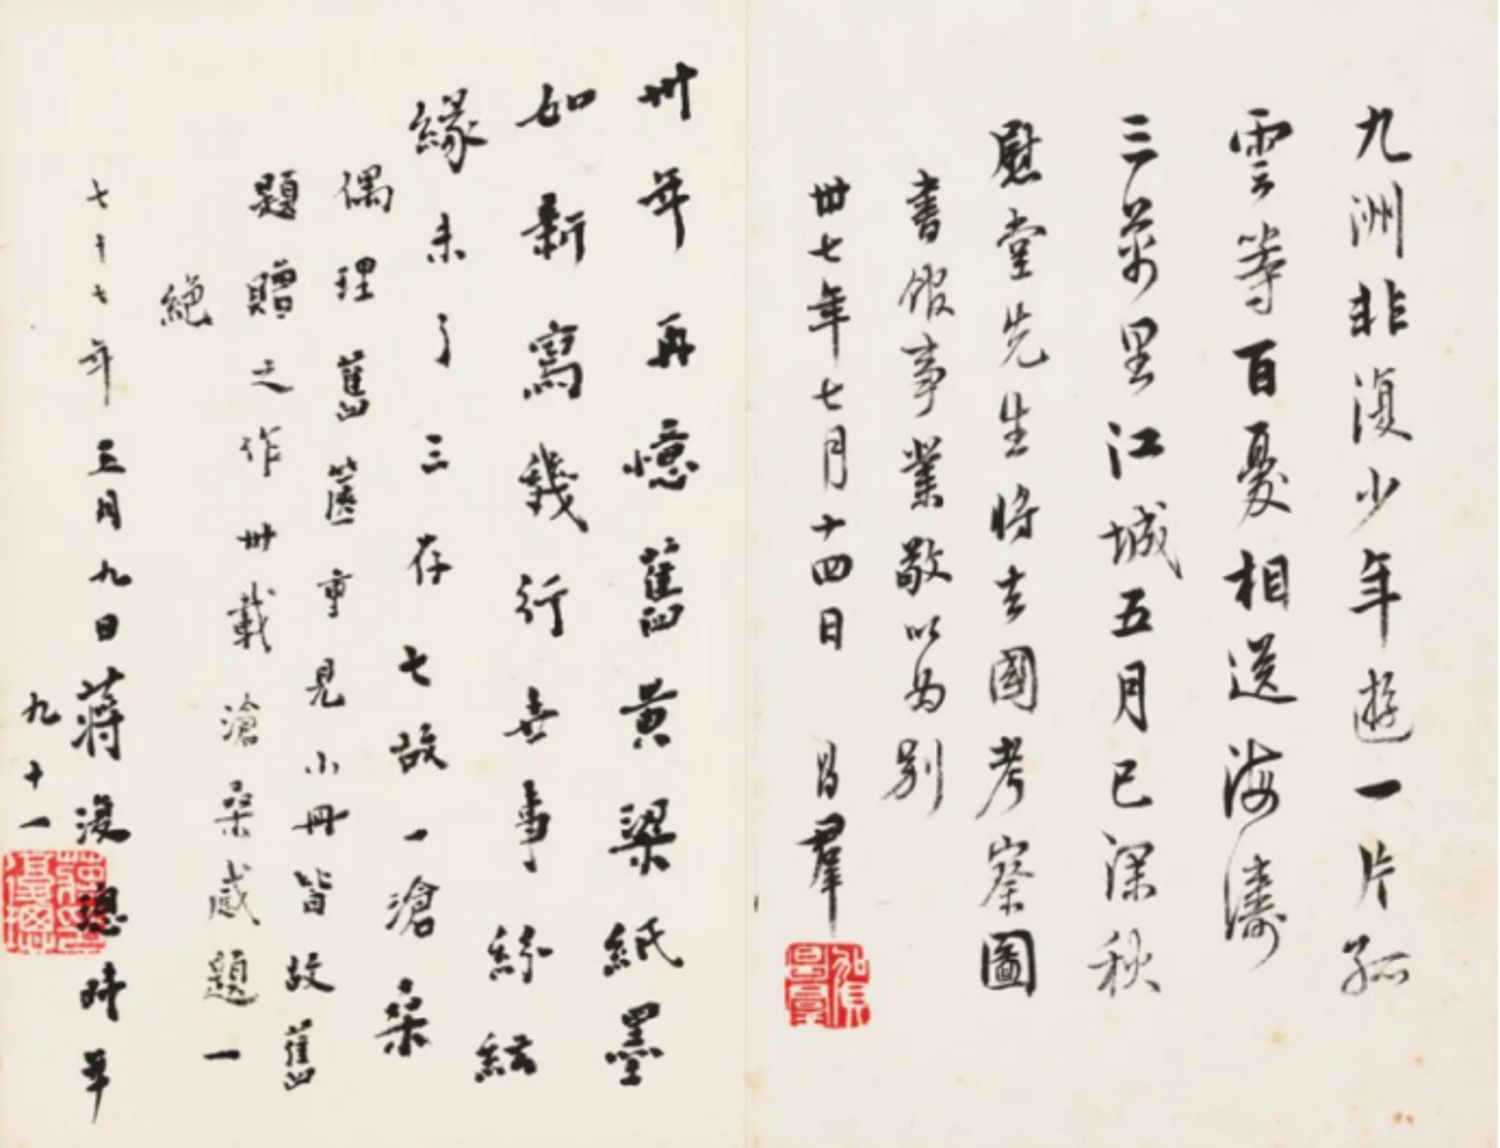 九洲非復少年遊一片孤
雲等百憂相送海濤
三萬里江城五月已深秋
慰堂先生將去國考察圖
書館事業敬以為別
卅七年七月十四日 昌羣
卅年再憶舊黃梁紙墨
如新寫幾行世事紛紜
緣未了三存七故一滄桑
偶理舊篋重見小冊皆故舊
題贈之作卅載滄桑感題一
絕
七十七年三月九日蔣復璁時年
九十一